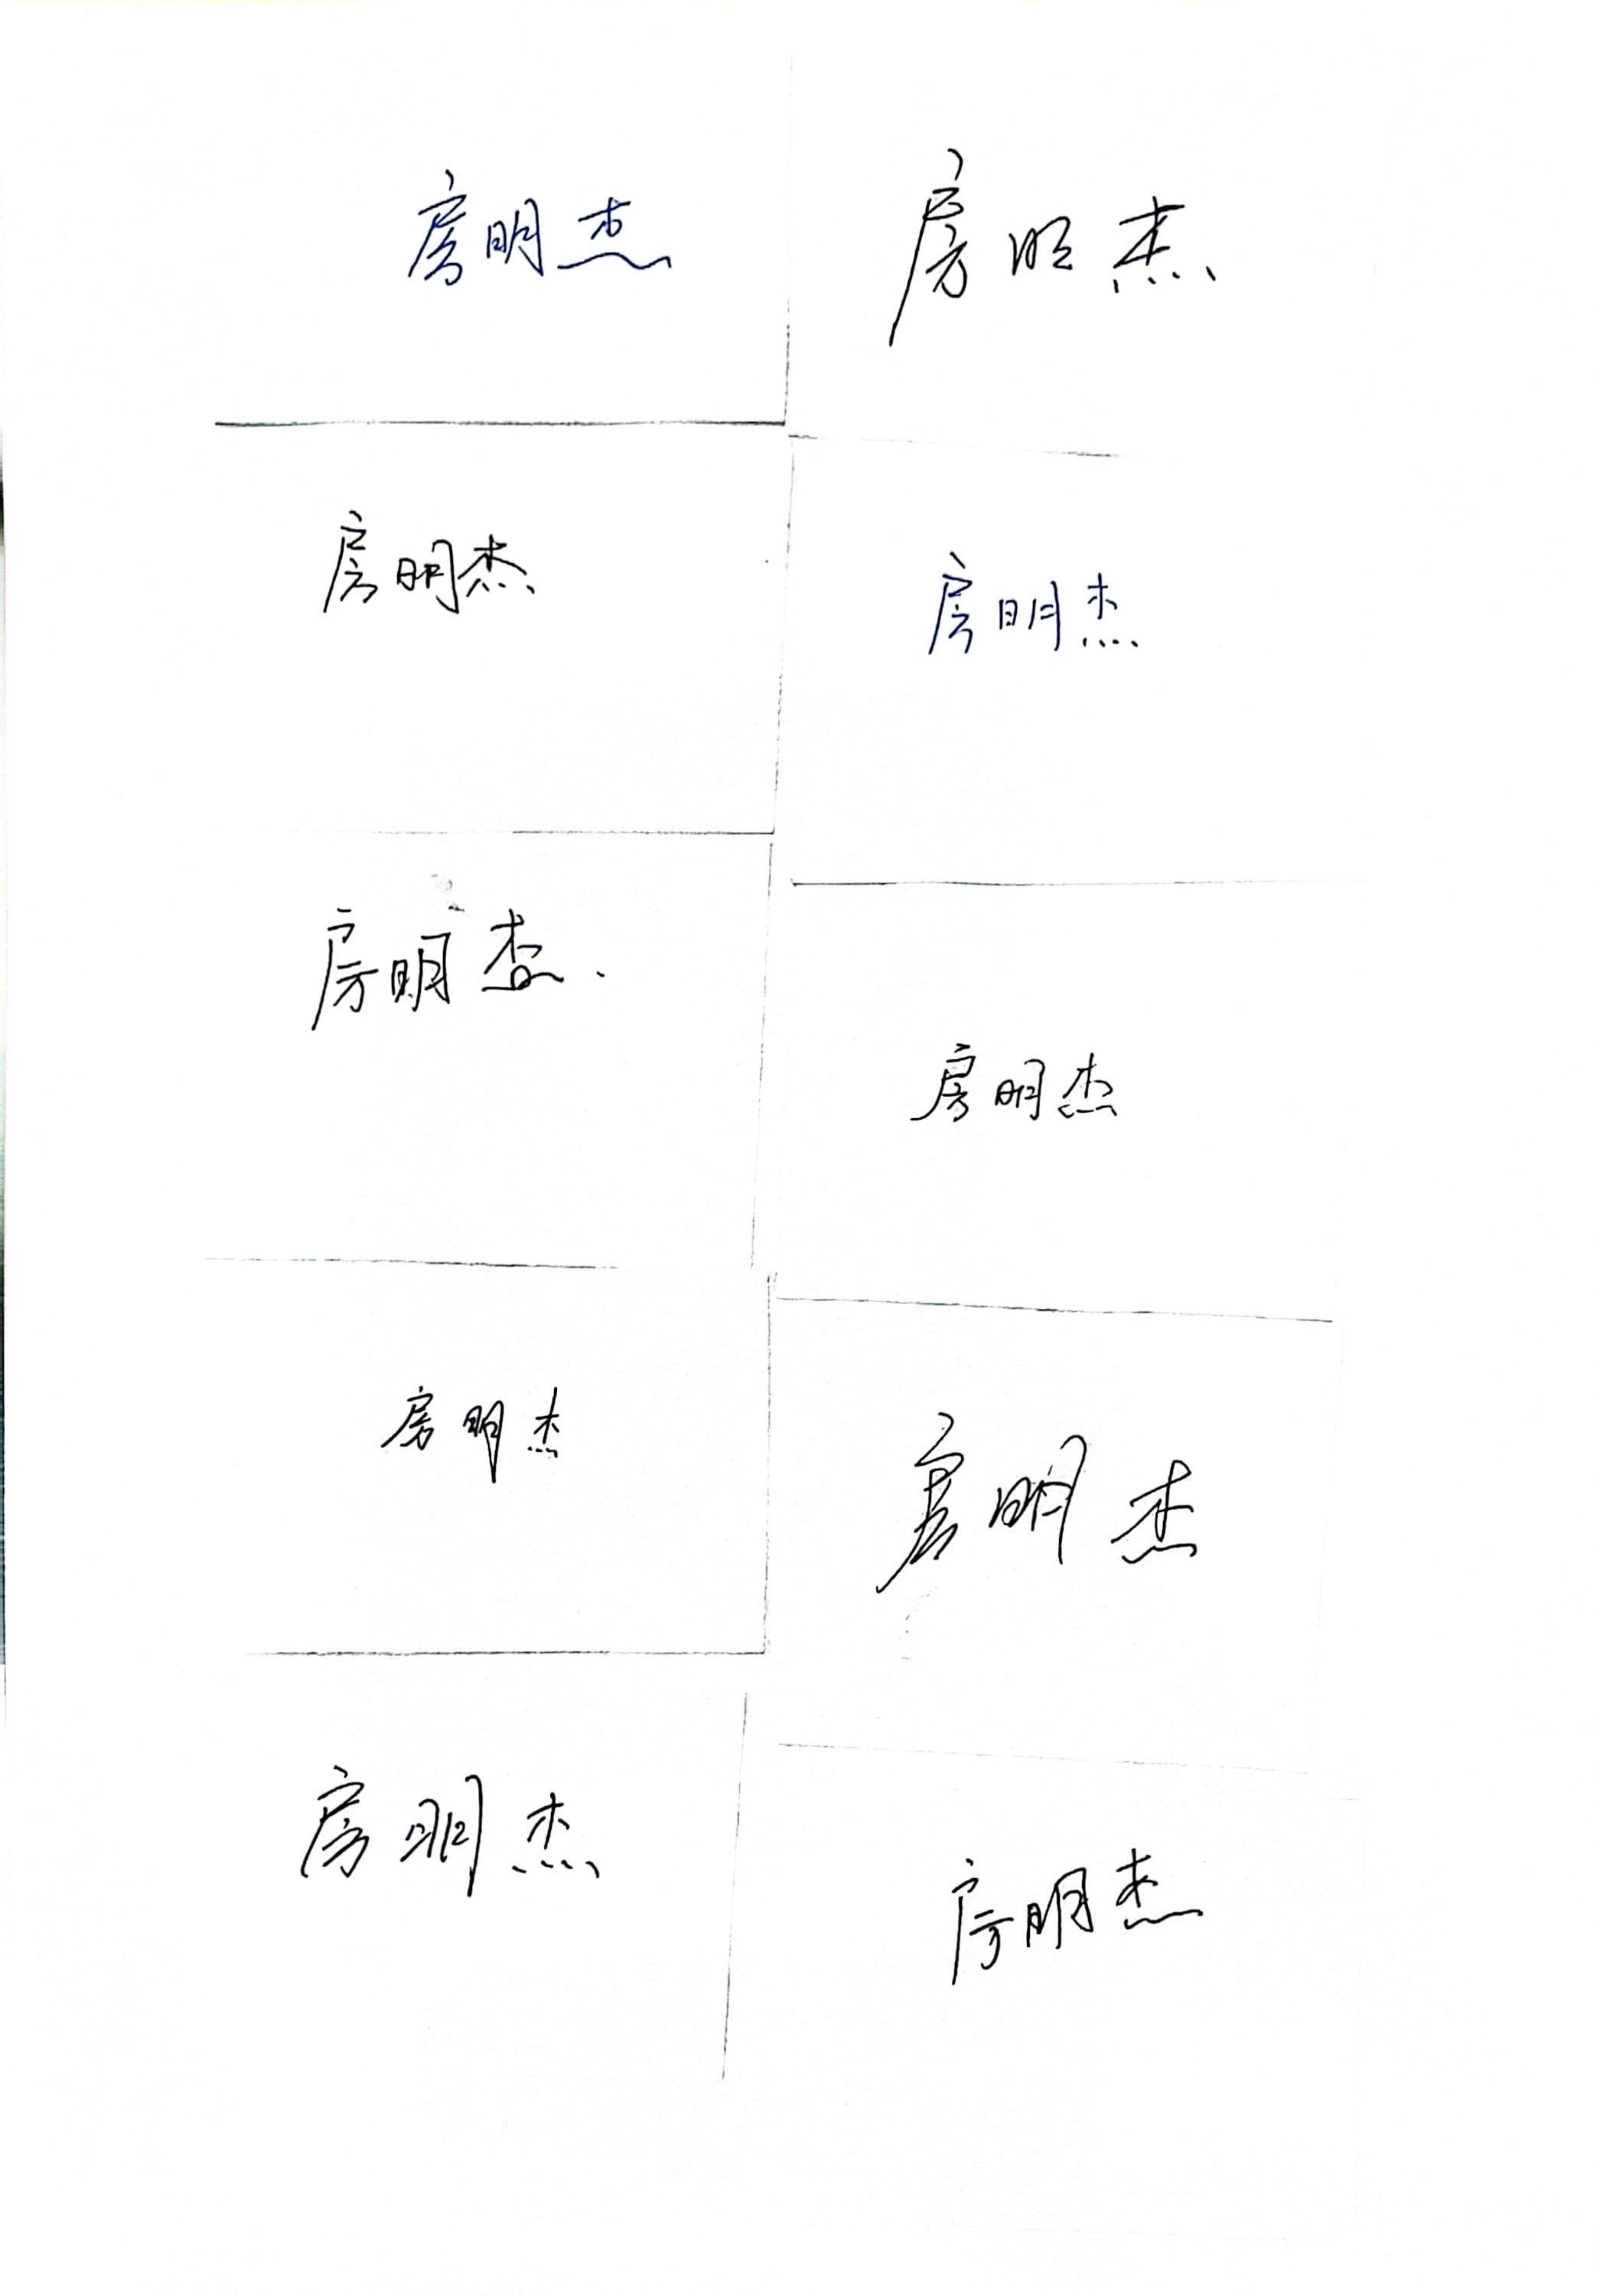 房明杰
房明杰
房明杰
房明杰
房明杰
房明杰
房明杰
房明杰
房明杰
房明杰